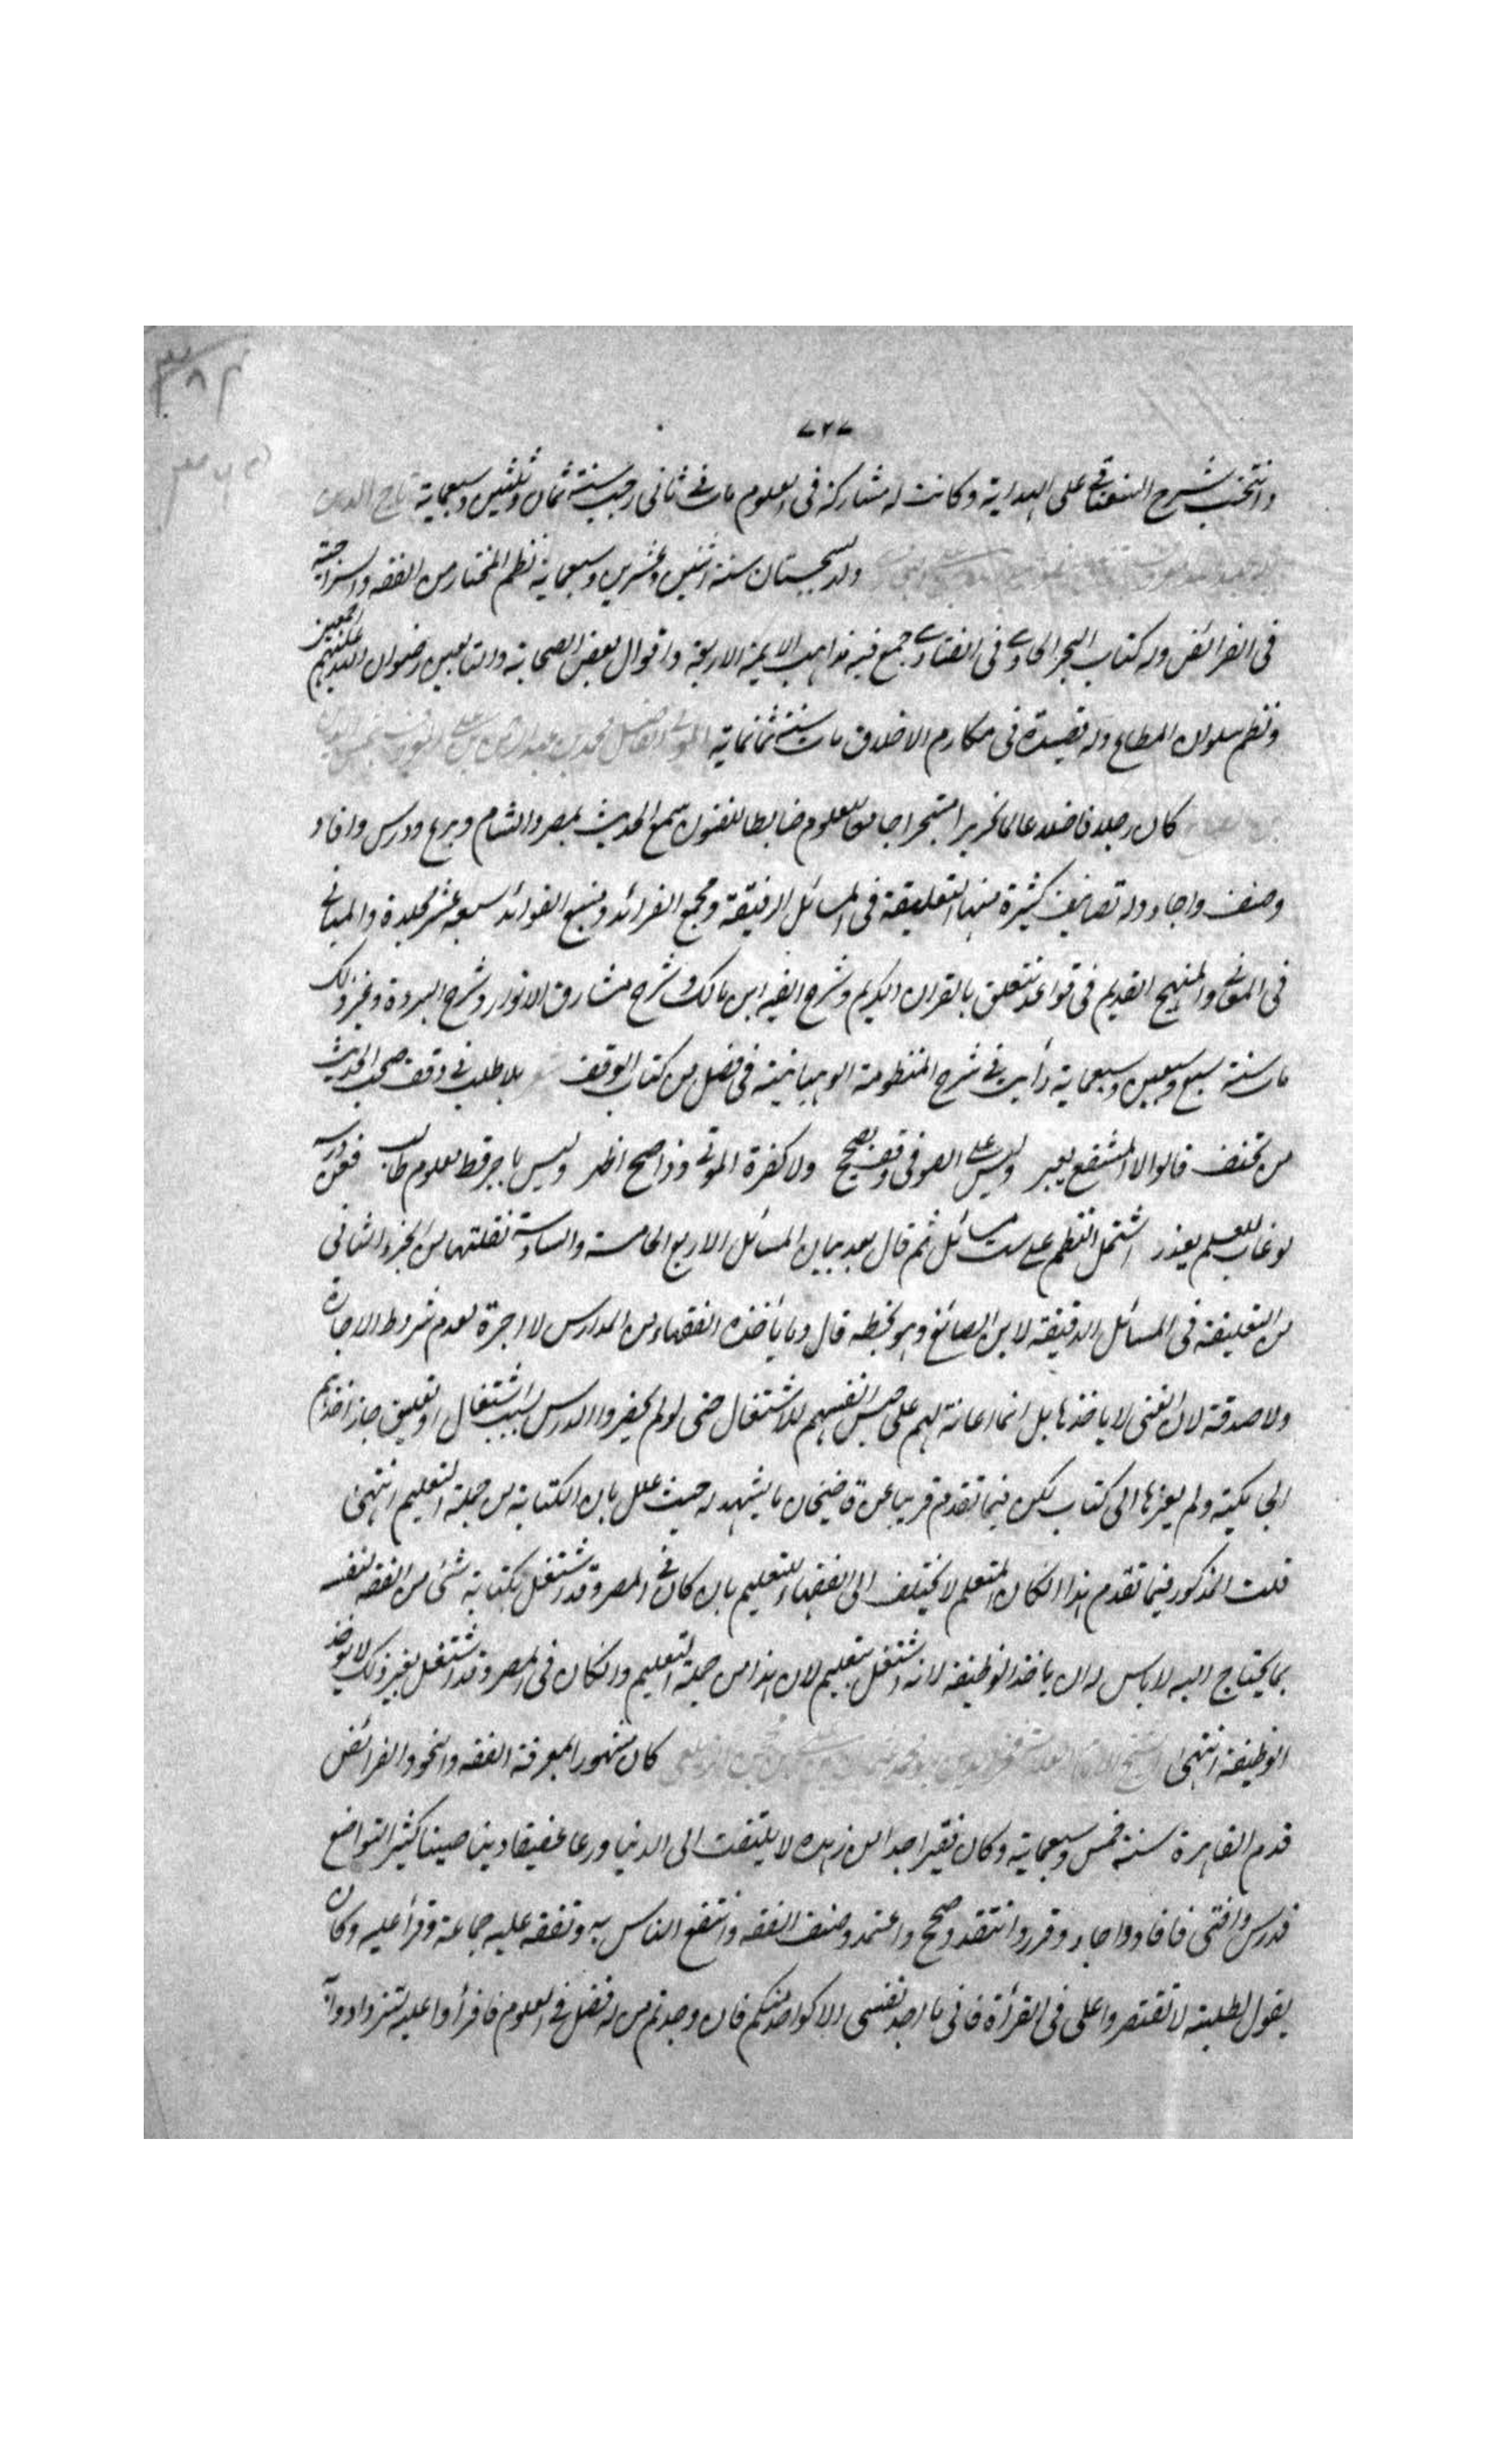 ٧٢٧
وانتخب شرح السغناقي على الهداية وكانت له مشاركة فى العلوم مات في ثانى رجب سنة ثمان وثلثين وسبعماية تاج الدين
ولد بسجستان سنة اثنين وعشرين وسبعماية نظم المختار من الفقه والسراجية
فى الفرائض وله كتاب البحر الحاوي فى الفتاوي جمع فيه مذاهب الايمة الاربعة واقوال بعض الصحابة والتابعين رضوان الله عليهم اجمعين
ونظم سلوان المطاع وله قصيدة فى مكارم الاخلاق مات سنة ثمانماية محمد بن عبد الرحمن بن علي
كان رجلا فاضلا عالما نحريرا متبحرا جامعا للعلوم ضابطا للفنون سمع الحديث بمصر والشام وبرع ودرس وافاد
وصنف واجاد وله تصانيف كثيرة منها التعليقة فى المسائل الدقيقة ومجمع الفرائد ومنبع الفوائد سبعة عشر مجلدة والمباني
فى المعاني والمنهج القديم فى قواعد تتعلق بالقران الكريم وشرح الفية ابن مالك وشرح مشارق الانوار وشرح البردة وغير ذلك
مات سنة سبع وسبعين وسبعماية رأيت في شرح المنظومة الوهبانية فى فصل من كتاب الوقف شعر بلا طلب في وقف صحب الحديث
من تحنف قالوا لا المشفع يعبر وليس على الصوفى وقف يصح ولا كفرة الموتى وذا صح اظهر وليس باجر قط معلوم طالب فعن درسه
لو غاب للعلم يعذر اشتمل النظم على ست مسائل ثم قال بعد بيان المسائل الاربع الخامسة والسادسة نقلتهما من الجزء الثانى
من التعليقة فى المسائل الدقيقة لابن الصائغ وهو بخطه قال وما يأخذه الفقهاء من المدارس لا اجرة لعدم شروط الاجارة
ولا صدقة لان الغنى لا ياخذها بل انما اعانة لهم على حبس انفسهم للاشتغال حتى لو لم يحضروا الدرس بسبب اشتغال او تعليق جاز اخذهم
الجامكية ولم يعزها الى كتاب لكن فيما تقدم قريبا عن قاضيخان ما يشهد له حيث علل بان الكتابة من جملة التعليم انتهى
قلت المذكور فيما تقدم هذا انكان المتعلم لا يختلف الى الفقهاء للتعليم بان كان في المصر وقد اشتغل بكتابة شئ من الفقه لنفسه
بما يحتاج اليه لا باس له ان ياخذ الوظيفة لانه اشتغل بتعليم لان هذا من جملة التعليم وانكان فى المصر وقد اشتغل بغير ذلك لا يؤخذ
الوظيفة انتهى كان مشهورا بمعرفة الفقه والنحو والفرائض
قدم القاهرة سنة خمس وسبعماية وكان فقيرا جدا لا يلتفت الى الدنيا ورعا عفيفا دينا صينا كثير التواضع
فدرس وافتى فافاد واجاد وقرر وانتقد وصحح واعتمد وصنف الفقه وانتفع الناس به وتفقه عليه جماعة وقرأ عليه وكان
يقول لطلبته لا تقتصروا على فى القرأة فانى ما اجد نفسى الا كواحد منكم فان وجدتم من له فضل في العلوم فاقرأوا عليه لتزدادوا